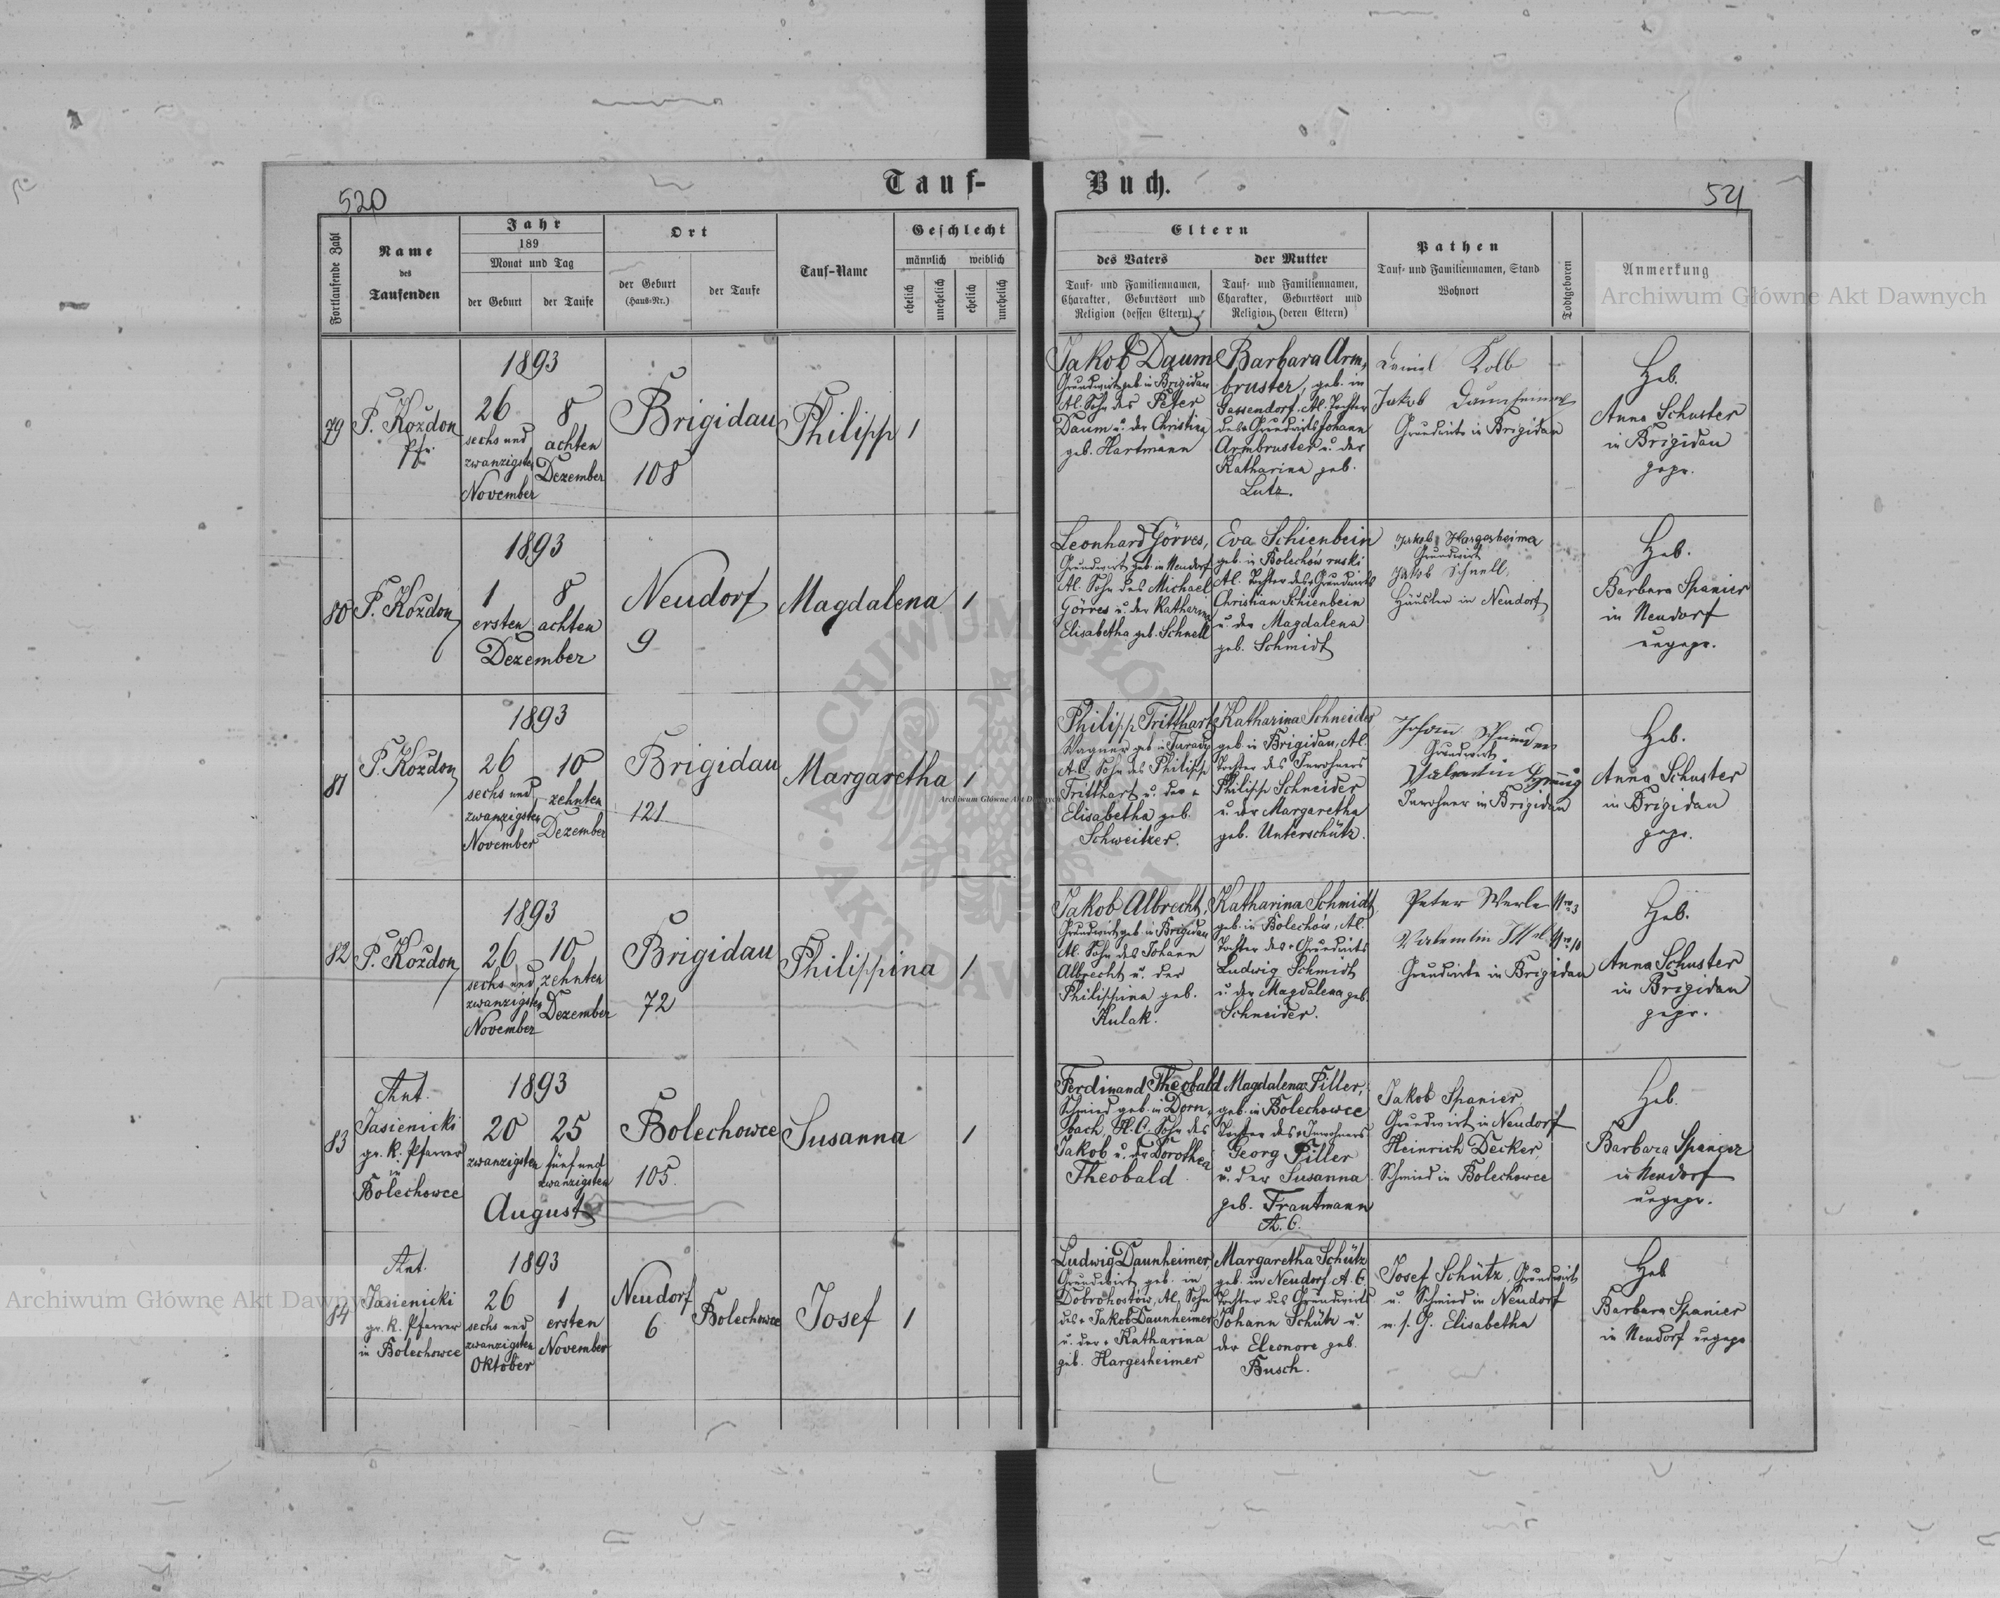 520
Tauf-
Buch.
521
Fortlaufende Zahl
Name
des
Taufenden
Jahr
189
Monat und Tag
der Geburt
der Taufe
Ort
der Geburt
(Haus-Nr.)
der Taufe
Tauf-Name
Geschlecht
männlich
weiblich
ehelich
unehelich
ehelich
unehelich
Eltern
des Vaters
der Mutter
Tauf- und Familiennamen,
Charakter, Geburtsort und
Religion (dessen Eltern)
Tauf- und Familiennamen,
Charakter, Geburtsort und
Religion (deren Eltern)
Pathen
Tauf- und Familiennamen, Stand
Wohnort
Todtgeboren
Anmerkung
79
F. Kozdon
Pfr.
1893
26
sechs und
zwanzigsten
November
8
achten
Dezember
Brigidau
108
Philipp
1
Jakob Daum
Grundwirt geb. in Brigidau
Al. Sohn des Peter
Daum u. der Christina
geb. Hartmann
Barbara Arm-
bruster, geb. in
Gassendorf. Al. Tochter
des Grundwirts Johann
Armbruster u. der
Katharina geb.
Lutz.
Daniel Kolb
Jakob Daunheimer
Grundwirte in Brigidau
Heb.
Anna Schuster
in Brigidau
gepr.
80
F. Kozdon
1893
1
ersten
8
achten
Dezember
Neudorf
9
Magdalena
1
Leonhard Görres,
Grundwirt geb. in Neudorf
Al. Sohn des Michael
Görres u. der Katharina
Elisabetha geb. Schnell
Eva Schienbein
geb. in Bolechów ruski
Al. Tochter des Grundwirts
Christian Schienbein
u. der Magdalena
geb. Schmidt
Jakob Hargesheimer
Grundwirt
Jakob Schnell,
Häusler in Neudorf
Heb.
Barbara Spanier
in Neudorf
ungepr.
81
F. Kozdon
1893
26
sechs und
zwanzigsten
November
10
zehnten
Dezember
Brigidau
121
Margaretha
1
Philipp Tritthart
Wagner geb. in
A.C. Sohn des Philipp
Tritthart u. der +
Elisabetha geb.
Schweitzer.
Katharina Schneider
geb. in Brigidau, Al.
Tochter des Inwohners
Philipp Schneider
u. der Margaretha
geb. Unterschütz.
Johann
Grundwirt
Valentin
Inwohner in Brigidau
Heb.
Anna Schuster
in Brigidau
gepr.
82
F. Kozdon
1893
26
sechs und
zwanzigsten
November
10
zehnten
Dezember
Brigidau
72
Philippina
1
Jakob Albrecht,
Grundwirt geb. in Brigidau
Al. Sohn des Johann
Albrecht u. der
Philippina geb.
Kulak.
Katharina Schmidt
geb. in Bolechów, Al.
Tochter des + Grundwirts
Ludwig Schmidt
u. der Magdalena geb.
Schneider.
Peter Werle Nro 3
Valentin Nro 10
Grundwirte in Brigidau
Heb.
Anna Schuster
in Brigidau
gepr.
83
Ant.
Jasienicki
gr. k. Pfarrer
in
Bolechowce
1893
20
zwanzigsten
25
fünf und
zwanzigsten
August
Bolechowce
105.
Susanna
1
Ferdinand Theobald
Schmied geb. in Dorn-
bach, H.C. Sohn des
Jakob u. der Dorothea
Theobald
Magdalena Filler,
geb. in Bolechowce
Tochter des + Inwohners
Georg Filler
u. der Susanna
geb. Trautmann
A. C.
Jakob Spanier,
Grundwirt in Neudorf
Heinrich Decker
Schmied in Bolechowce
Heb.
Barbara Spanier
in Neudorf
ungepr.
84
Ant.
Jasienicki
gr. k. Pfarrer
in Bolechowce
1893
26
sechs und
zwanzigsten
Oktober
1
ersten
November
Neudorf
6
Bolechowce
Josef
1
Ludwig Daunheimer
Grundwirt geb. in
Dobrohostów, Al. Sohn
des + Jakob Daunheimer
u. der + Katharina
geb. Hargesheimer
Margaretha Schütz
geb. in Neudorf A. C.
Tochter des Grundwirts
Johann Schütz u.
der Eleonore geb.
Busch.
Josef Schütz, Grundwirt
u. Schmied in Neudorf
m. s. G. Elisabetha
Heb
Barbara Spanier
in Neudorf ungepr
Archiwum Główne Akt Dawnych
Archiwum Główne Akt Dawnych
Archiwum Główne Akt Dawnych
ARCHIWUM GŁÓWNE AKT DAWNYCH